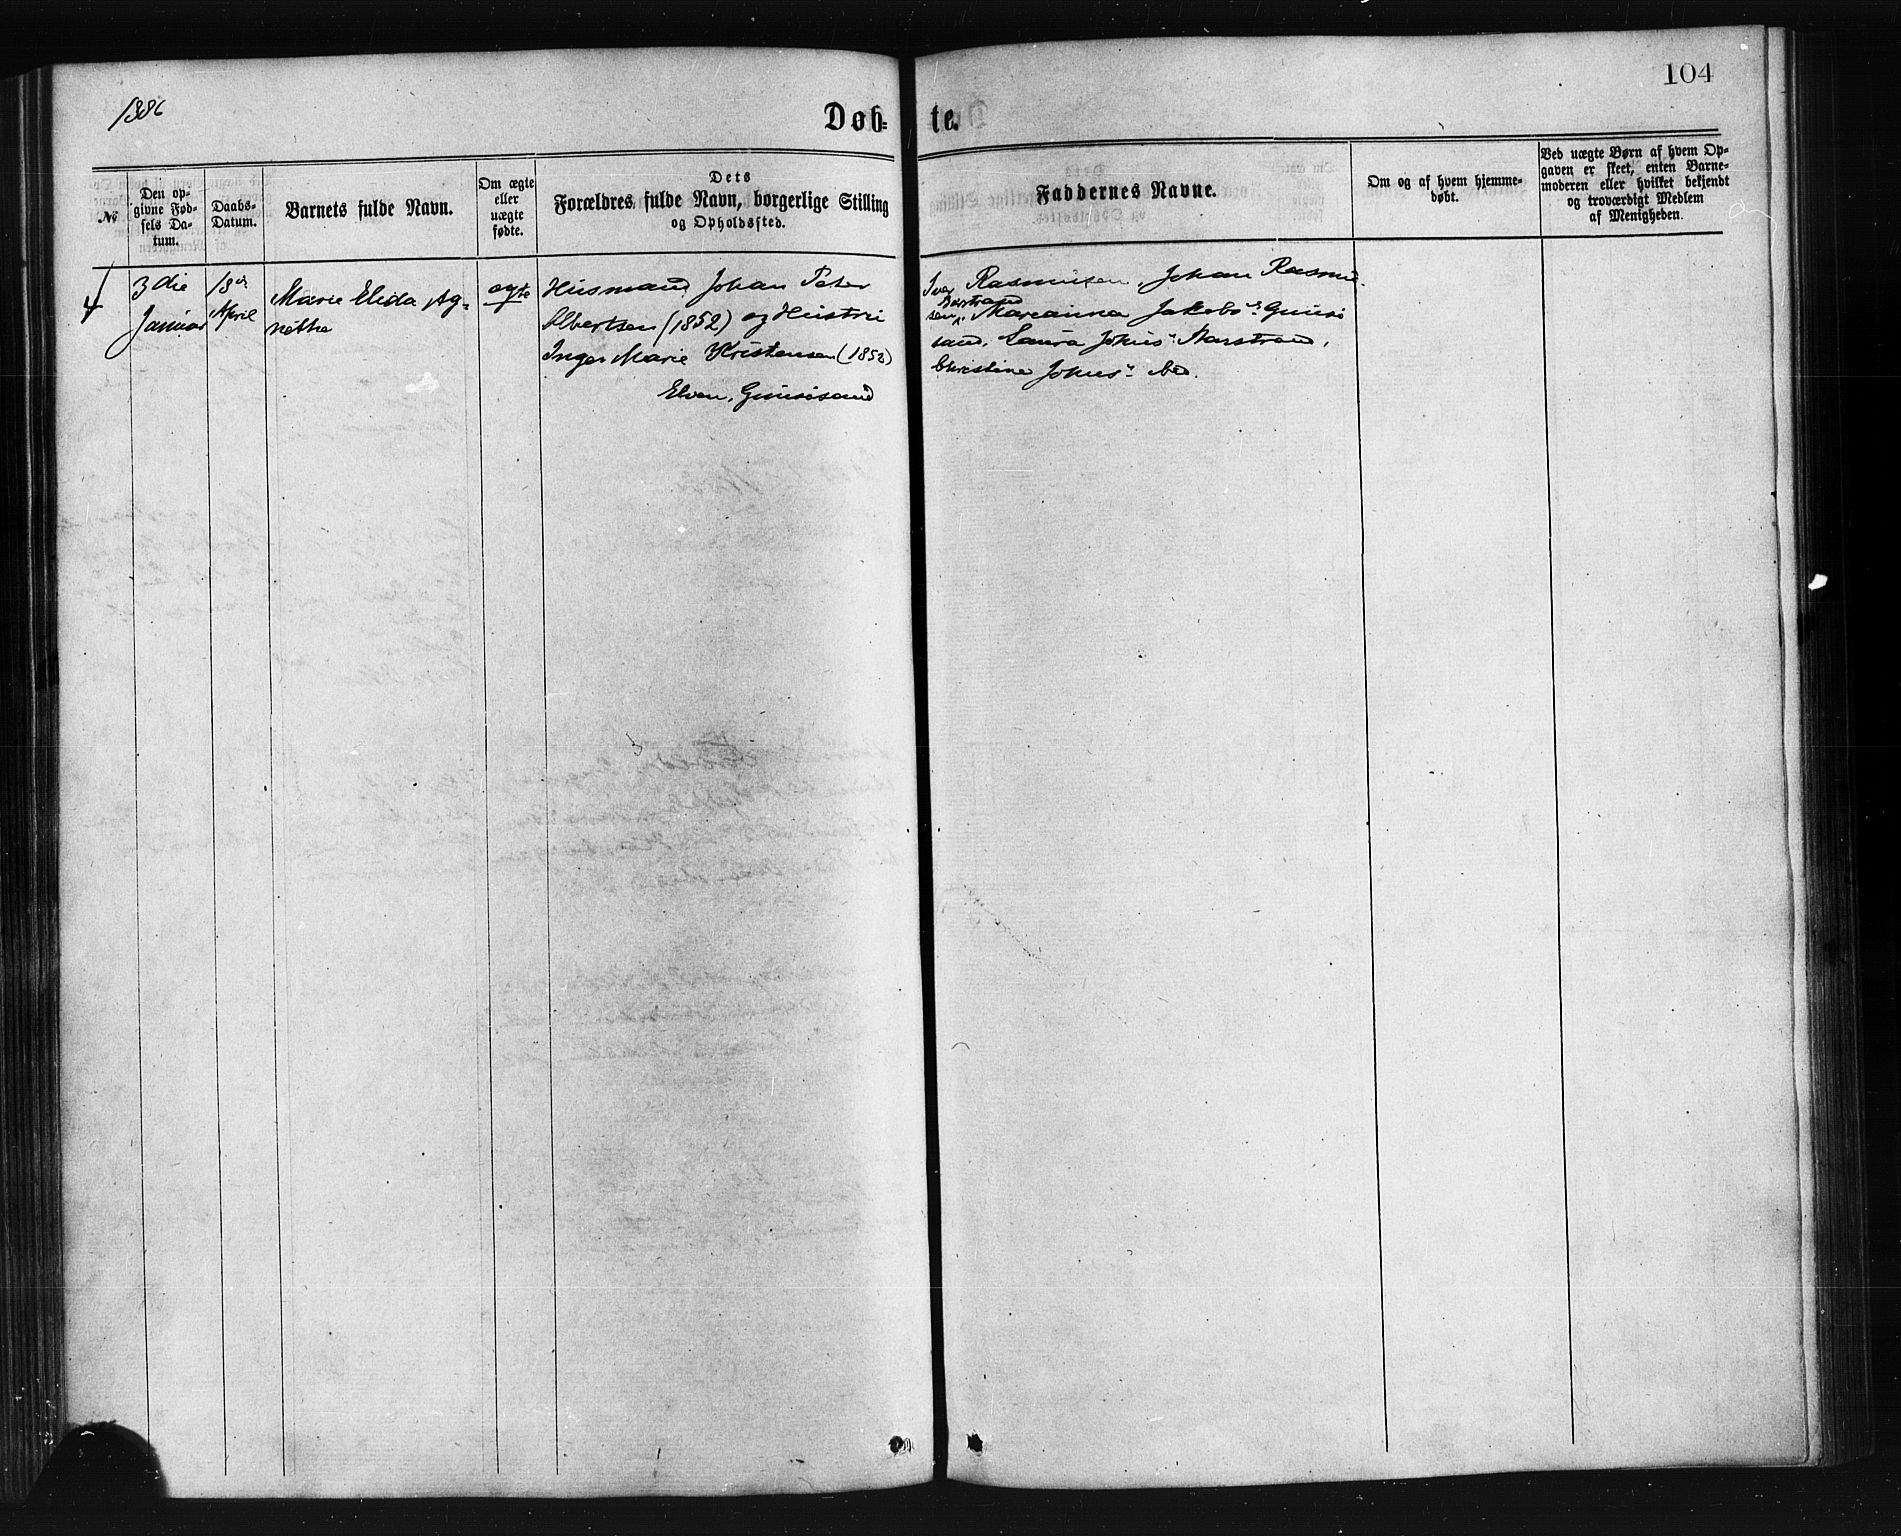 104
1886
Døb= te.
№
Den op-
givne Fød-
sels Da-
tum.
Daabs-
Datum.
Barnets fulde Navn.
Om ægte
eller
uægte
fødte.
Dets
Forældres fulde Navn, borgerlige Stilling
og Opholdssted.
Faddernes Navne.
Om og af hvem hjemme-
døbt.
Ved uægte Børn af hvem Op-
gaven er skeet, enten Barne-
moderen eller hvilket bekjendt
og troværdigt Medlem
af Menigheden.
4
3die
Januar
18de
April
Marie Elida Ag-
nethe
ægte
Husmand Johan Peter
Albertsen (1852) og Hustru
Inger Marie Kristensen (1852)
Elven, Gimsøsand
Iver Rasmussen, Johan Rasmus
sen Barstrand Marianna Jakobs" Gimsø
sand, Laura Johns" Barstrand,
Christine Johns" ibd.